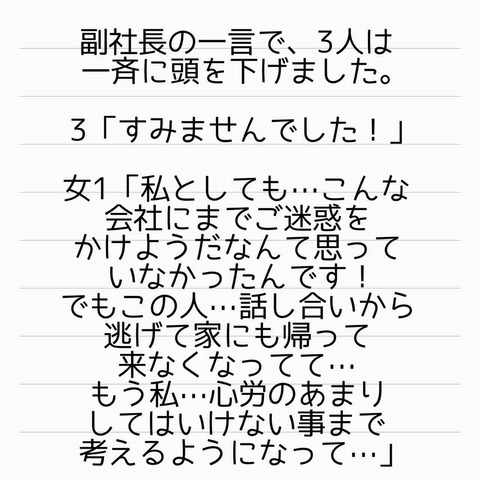 副社長の一言で、3人は
一斉に頭を下げました。
3「すみませんでした！」
女1「私としても…こんな
会社にまでご迷惑を
かけようだなんて思って
いなかったんです！
でもこの人…話し合いから
逃げて家にも帰って
来なくなってて…
もう私…心労のあまり
してはいけない事まで
考えるようになって…」